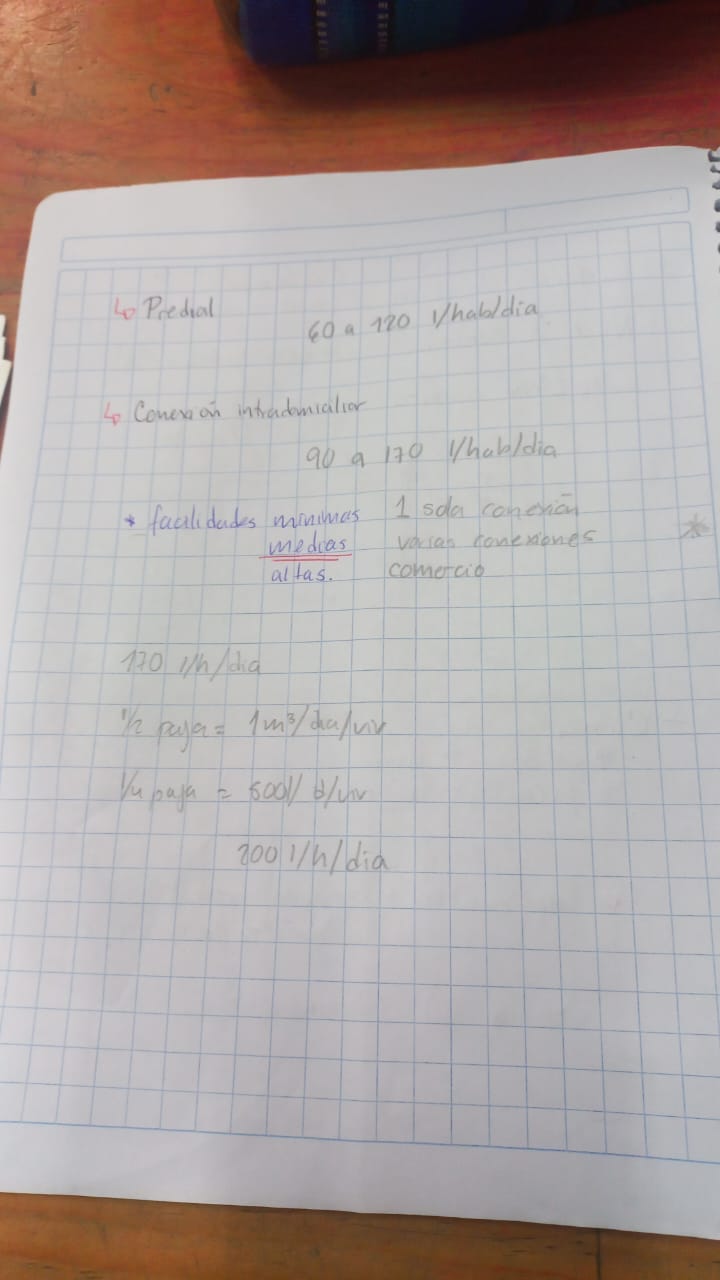 ↳ Predial
60 a 120 l/hab/dia
↳ Conexión intradomiciliar
90 a 170 l/hab/dia
* facilidades minimas 1 sola conexión
medias varias conexiones *
altas. comercio
170 l/h/dia
1/2 paja = 1m³/dia/viv
1/4 paja = 500 l/ d/viv
200 l/h/dia